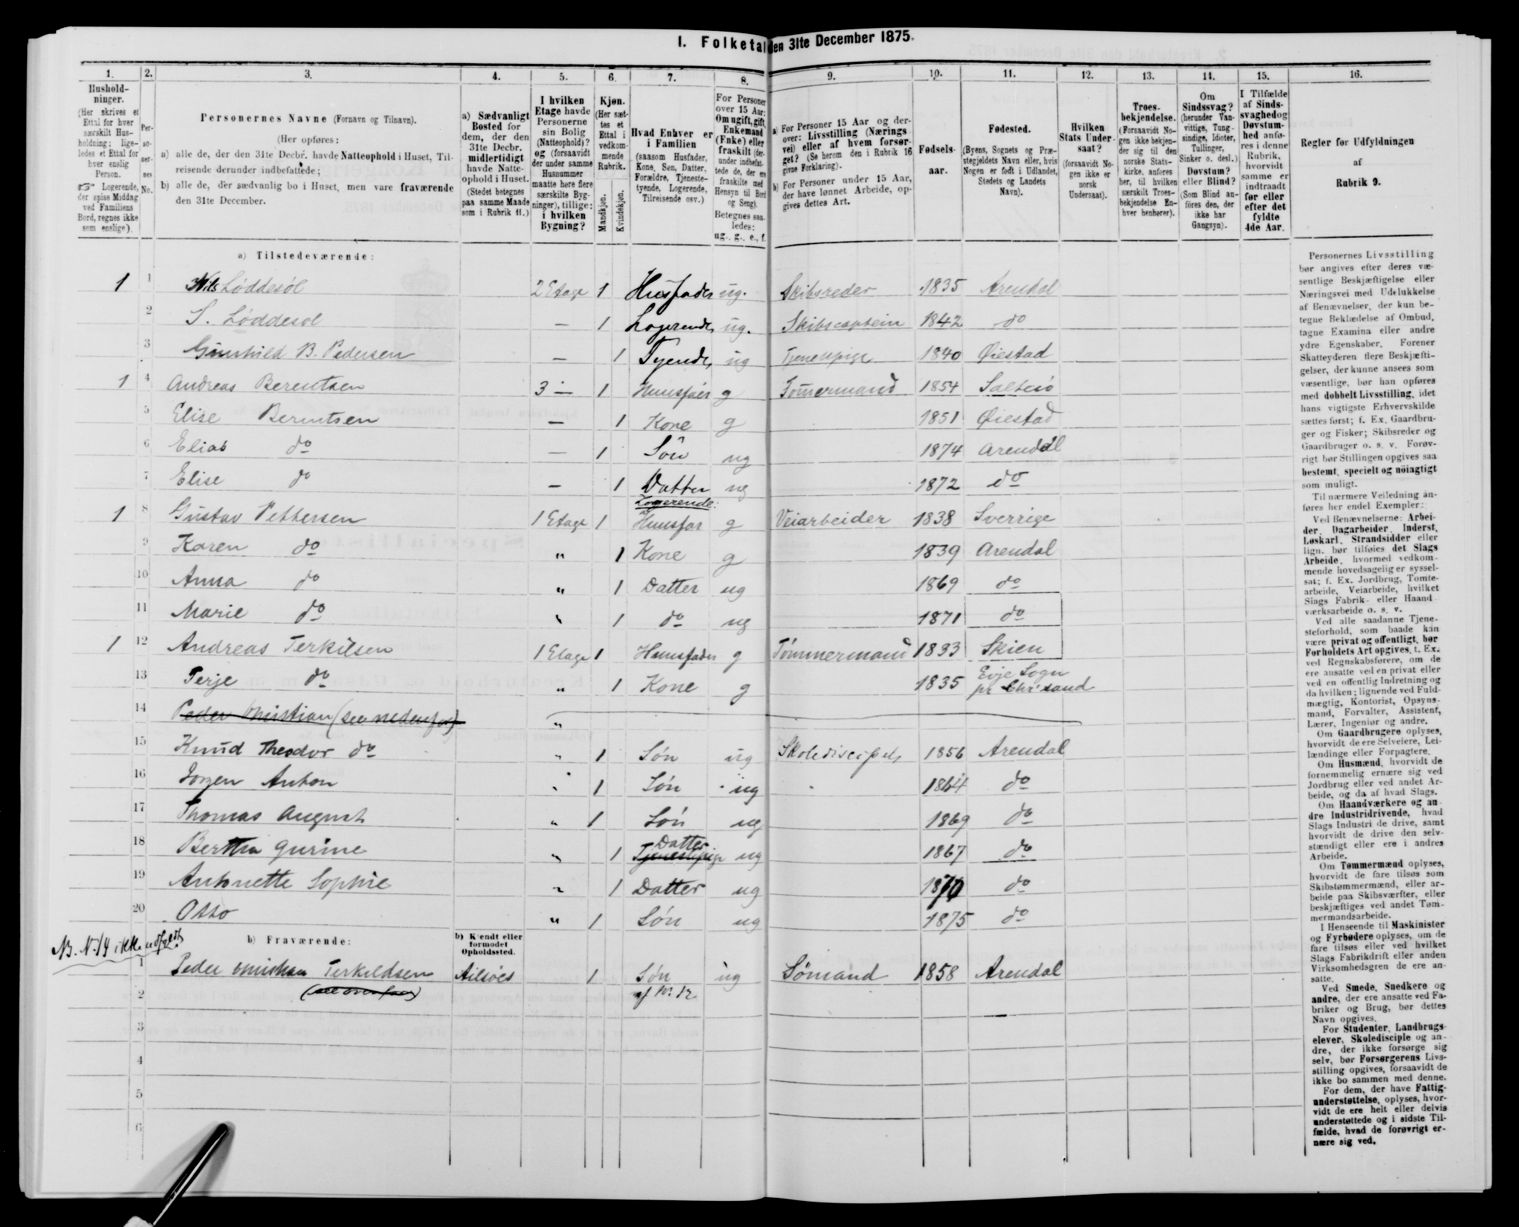 I. Folketal den 31te December 1875.
1. 2. 3. 4. 5. 6. 7. 8. 9. 10. 11. 12. 13. 14. 15. 16.
Hushold-
ninger.
(Her skrives et
Ettal for hver
særskilt Hus-
holdning; lige-
ledes et Ettal for
hver enslig
Person.
Logerende,
der spise Middag
ved Familiens
Bord, regnes ikke
som enslige).
Per-
so-
ner-
nes
No.
Personernes Navne (Fornavn og Tilnavn).
(Her opføres:
a) alle de, der den 31te Decbr. havde Natteophold i Huset, Til-
reisende derunder indbefattede;
b) alle de, der sædvanlig bo i Huset, men vare fraværende
den 31te December.
a) Sædvanligt
Bosted for
dem, der den
31te Decbr.
midlertidigt
havde Natte-
ophold i Huset.
(Stedet betegnes
paa samme Maade
som i Rubrik 11.)
I hvilken
Etage havde
Personerne
sin Bolig
(Natteophold)?
og (forsaavidt
der under samme
Husnummer
maatte høre flere
særskilte Byg-
ninger), tillige:
i hvilken
Bygning?
Kjøn.
(Her sæt-
tes et
Ettal i
vedkom-
mende
Rubrik.
Mandkjøn.
Kvindekjøn.
Hvad Enhver er
i Familien
(saasom Husfader,
Kone, Søn, Datter,
Forældre, Tjeneste-
tyende, Logerende,
Tilreisende osv.)
For Personer
over 15 Aar:
Om ugift, gift,
Enkemand
(Enke) eller
fraskilt (der-
under indbefat-
tede de, der ere
fraskilte med
Hensyn til Bord
og Seng).
Betegnes saa-
ledes:
ug., g., e., f.
a) For Personer 15 Aar og der-
over: Livsstilling (Nærings
vei) eller af hvem forsør-
get? (Se herom den i Rubrik 16
givne Forklaring).
b) For Personer under 15 Aar,
der have lønnet Arbeide, op-
gives dettes Art.
Fødsels-
aar.
Fødested.
(Byens, Sognets og Præ-
stegjeldets Navn eller, hvis
Nogen er født i Udlandet,
Stedets og Landets
Navn).
Hvilken
Stats Under-
saat?
(forsaavidt No-
gen ikke er
norsk
Undersaat).
Troes-
bekjendelse.
(Forsaavidt No-
gen ikke bekjen-
der sig til den
norske Stats-
kirke, anføres
her, til hvilken
særskilt Troes-
bekjendelse En-
hver henhører).
Om
Sindssvag?
(herunder Van-
vittige, Tung-
sindige, Idioter,
Tullinger,
Sinker o. desl.)
Døvstum?
eller Blind?
(Som Blind an-
føres den, der
ikke har
Gangsyn).
I Tilfælde
af Sinds-
svaghed og
Døvstum-
hed anfø-
res i denne
Rubrik,
hvorvidt
samme er
indtraadt
før eller
efter det
fyldte
4de Aar.
Regler for Udfyldningen
af
Rubrik 9.
a) Tilstedeværende:
1 1 Nils Løddesøl 2 Etage 1 Husfader ug. Skibsreder 1835 Arendal
2 S. Løddesøl — 1 Logerende ug. Skibscaptein 1842 do
3 Gunhild B. Pedersen — 1 Tyende ug Tjenespige 1840 Øiestad
1 4 Andreas Berentsen 3 — 1 Huusfaer g Tømermand 1854
5 Elise Berentsen — 1 Kone g 1851 Øiestad
6 Elias do — 1 Søn ug 1874 Arendal
7 Elise do — 1 Datter ug 1872 do
Logerende:
1 8 Gustav Pettersen 1 Etage 1 Huusfar g Veiarbeider 1838 Sverrige
9 Karen do " 1 Kone g 1839 Arendal
10 Anna do " 1 Datter ug 1869 do
11 Marie do " 1 do ug 1871 do
1 12 Andreas Terkilsen 1 Etage 1 Huusfader g Tømmermand 1833 Skien
13 Terje do " 1 Kone g 1835 Evje Sogn
pr Chr'sand
14 Peder Christian (see nedenfor) "
15 Knud Theodor do " 1 Søn ug Skolediscipel 1856 Arendal
16 Jørgen Anton " 1 Søn ug 1864 do
17 Thomas August " 1 Søn ug 1869 do
18 Bertha Gurine " 1 Tjenestpige Datter ug 1867 do
19 Antonette Sophie " 1 Datter ug 1870 do
20 Otto " 1 Søn ug 1875 do
NB. N. 14 ikke udfyldt
b) Fraværende:
b) Kjendt eller
formodet
Opholdssted.
1 Peder Christian Terkildsen 1 Søn ug Sømand 1858 Arendal
(see ovenfor) af No 12
2
3
4
5
6
Personernes Livsstilling
bør angives efter deres væ-
sentlige Beskjæftigelse eller
Næringsvei med Udelukkelse
af Benævnelser, der kun be-
tegne Beklædelse af Ombud,
tagne Examina eller andre
ydre Egenskaber. Forener
Skatteyderen flere Beskjæfti-
gelser, der kunne ansees som
væsentlige, bør han opføres
med dobbelt Livsstilling, idet
hans vigtigste Erhvervskilde
sættes først; f. Ex. Gaardbru-
ger og Fisker; Skibsreder og
Gaardbruger o. s. v. Forøv-
rigt bør Stillingen opgives saa
bestemt, specielt og nøiagtigt
som muligt.
Til nærmere Veiledning an-
føres her endel Exempler:
Ved Benævnelserne: Arbei-
der, Dagarbeider, Inderst,
Løskarl, Strandsidder eller
lign. bør tilføies det Slags
Arbeide, hvormed vedkom-
mende hovedsagelig er syssel-
sat; f. Ex. Jordbrug, Tomte-
arbeide, Veiarbeide, hvilket
Slags Fabrik- eller Haand-
værksarbeide o. s. v.
Ved alle saadanne Tjene-
steforhold, som baade kan
være privat og offentligt, bør
Forholdets Art opgives, f. Ex.
ved Regnskabsførere, om de
ere ansatte ved en privat eller
ved en offentlig Indretning og
da hvilken; lignende ved Fuld-
mægtig, Kontorist, Opsyns-
mand, Forvalter, Assistent,
Lærer, Ingeniør og andre.
Om Gaardbrugere oplyses,
hvorvidt de ere Selveiere, Lei-
lændinge eller Forpagtere.
Om Husmænd, hvorvidt de
fornemmelig ernære sig ved
Jordbrug eller ved andet Ar-
beide, og da af hvad Slags.
Om Haandværkere og an-
dre Industridrivende, hvad
Slags Industri de drive, samt
hvorvidt de drive den selv-
stændigt eller ere i andres
Arbeide.
Om Tømmermænd oplyses,
hvorvidt de fare tilsøs som
Skibstømmermænd, eller ar-
beide paa Skibsværfter, eller
beskjæftiges ved andet Tøm-
mermandsarbeide.
I Henseende til Maskinister
og Fyrbødere oplyses, om de
fare tilsøs eller ved hvilket
Slags Fabrikdrift eller anden
Virksomhedsgren de ere an-
satte.
Ved Smede, Snedkere og
andre, der ere ansatte ved Fa-
briker og Brug, bør dettes
Navn opgives.
For Studenter, Landbrugs-
elever, Skoledisciple og an-
dre, der ikke forsørge sig
selv, bør Forsørgerens Livs-
stilling opgives, forsaavidt de
ikke bo sammen med denne.
For dem, der have Fattig-
understøttelse, oplyses, hvor-
vidt de ere helt eller delvis
understøttede og i sidste Til-
fælde, hvad de forøvrigt er-
nære sig ved.